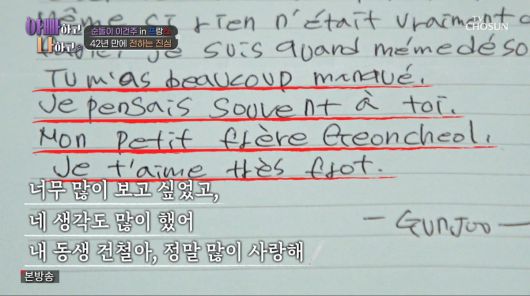 아빠하고 나하고
순돌이 이건주 in 프랑스
42년 만에 전하는 진심
TV CHOSUN
Même si rien n'était vraiment
je suis quand même déso
Tu m'as beaucoup manqué.
Je pensais souvent à toi.
Mon petit frère Geoncheol.
Je t'aime très frot.
너무 많이 보고 싶었고,
네 생각도 많이 했어
내 동생 건철아, 정말 많이 사랑해
— GUNJOO —
본방송